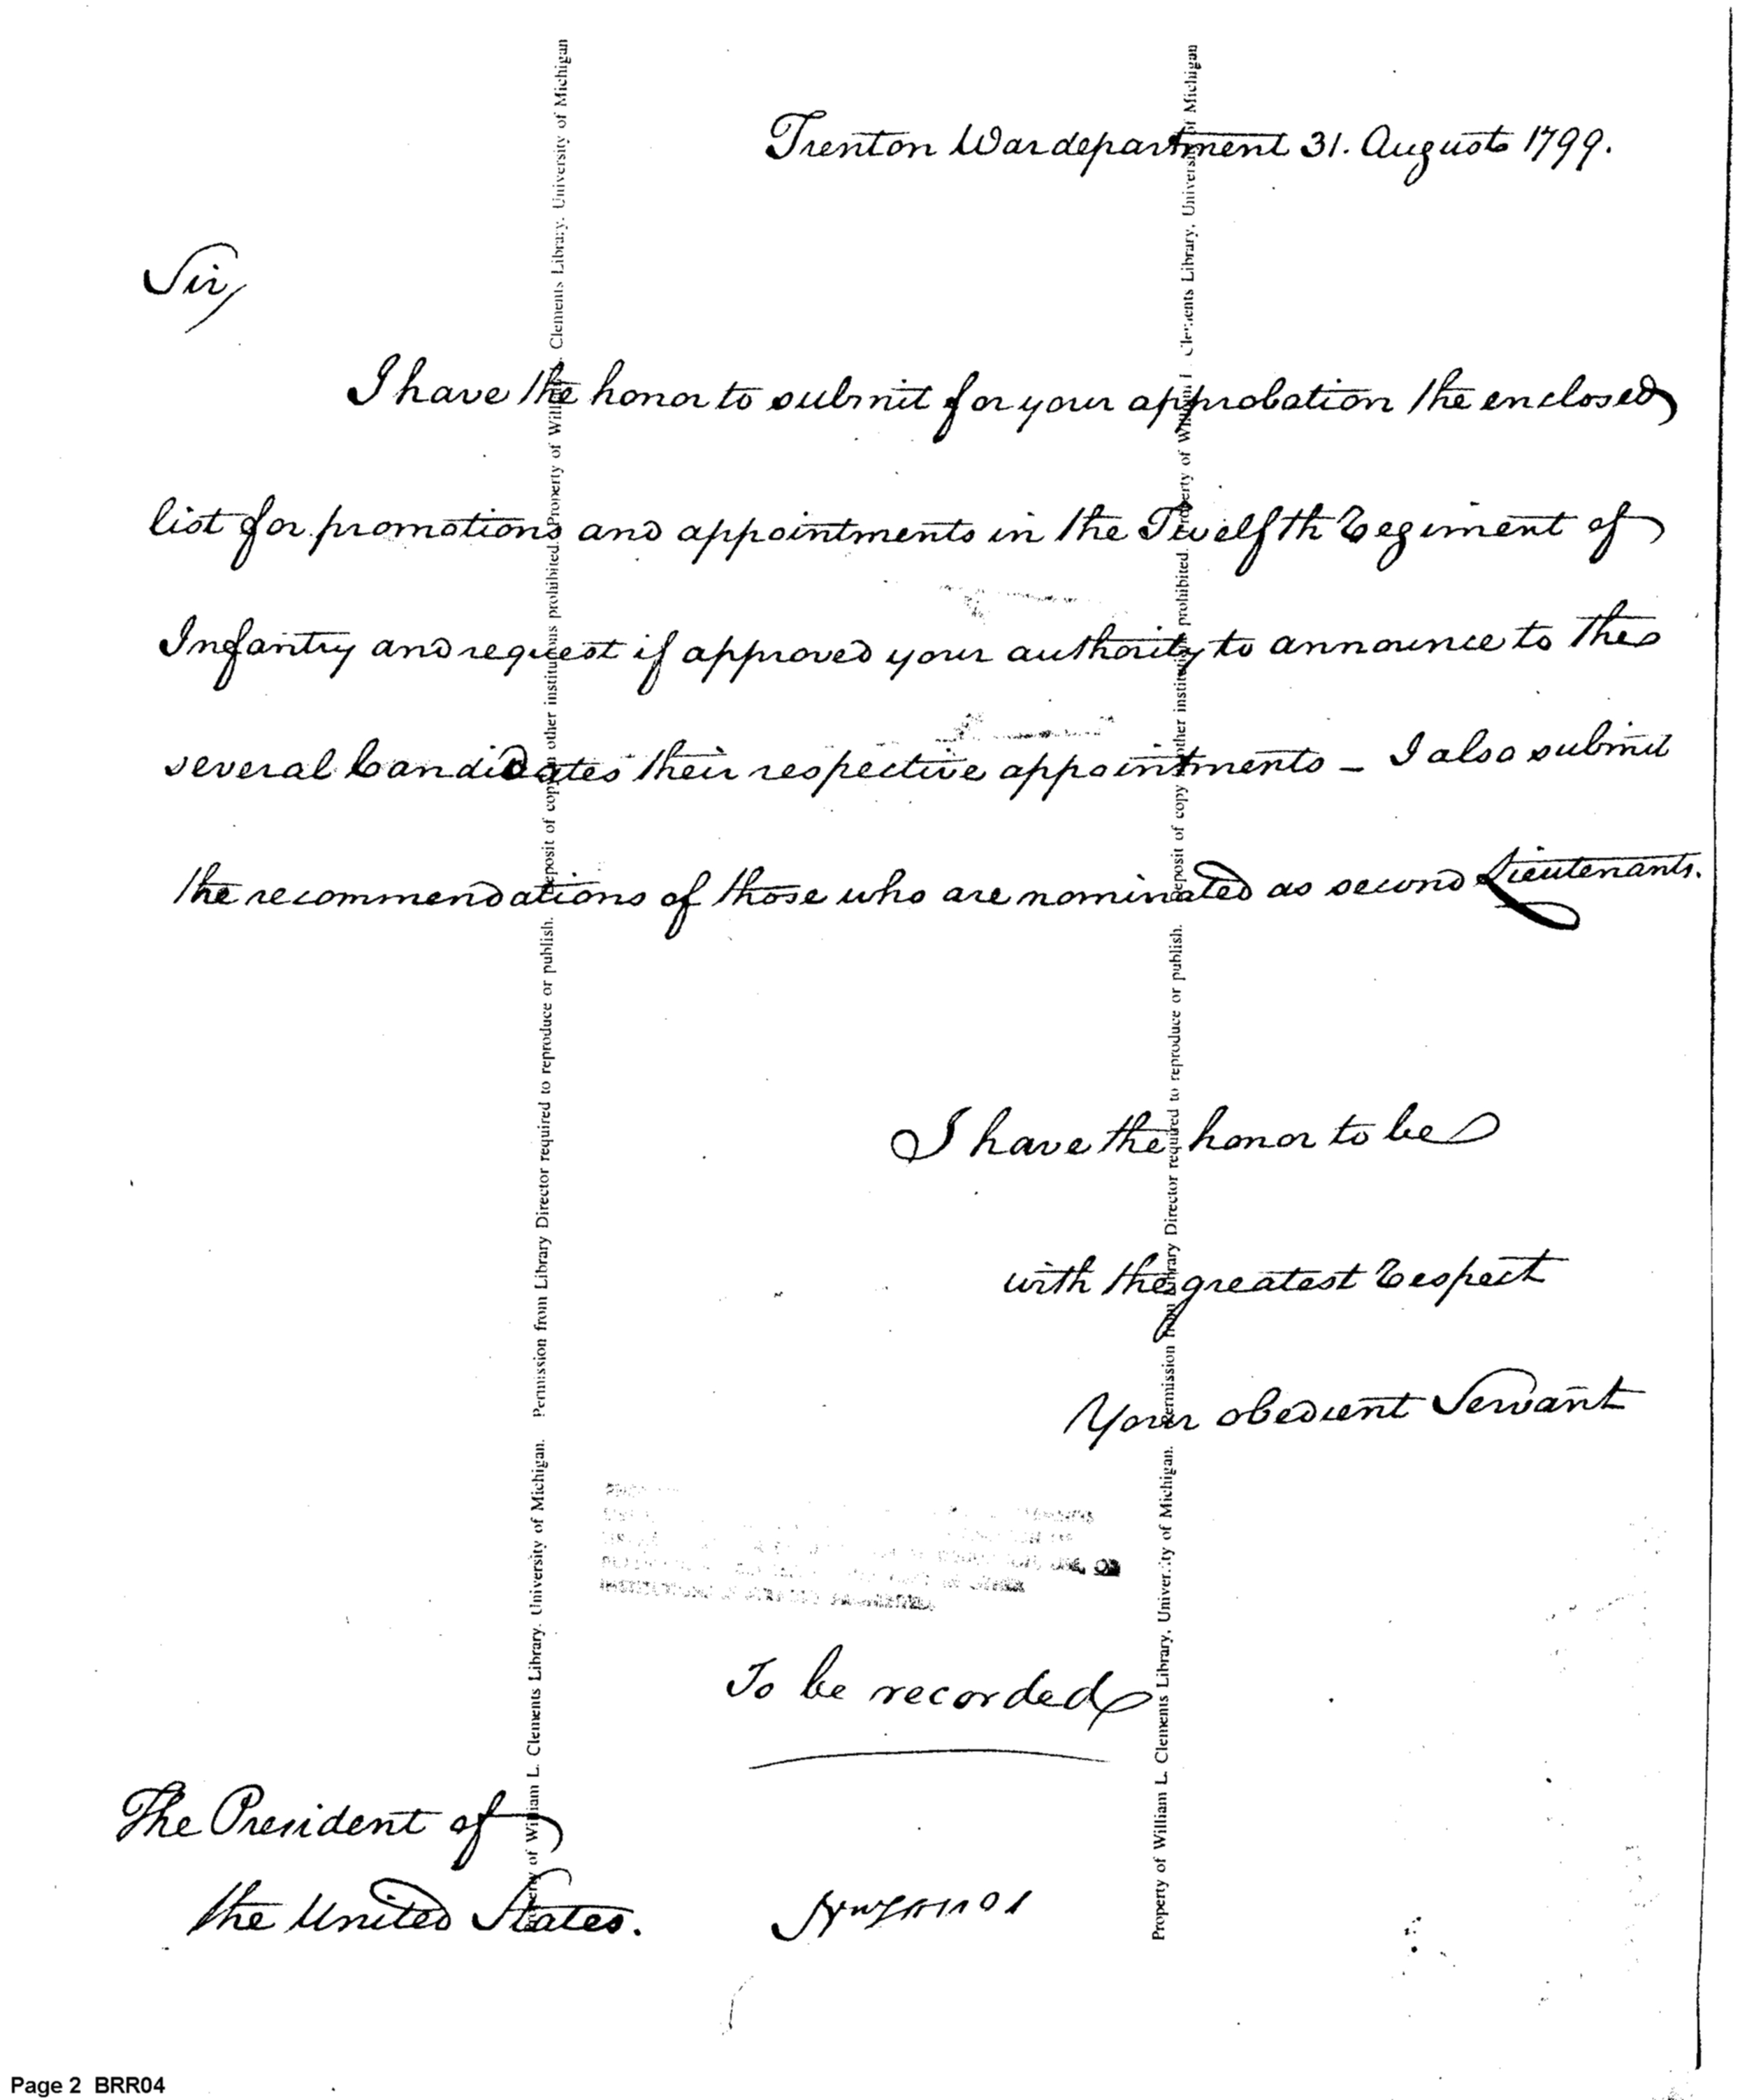 Trenton War department 31. August 1799.
Sir,
I have the honor to submit for your approbation the enclosed
list for promotions and appointments in the Twelfth Regiment of
Infantry and request if approved your authority to announce to the
several Candidates their respective appointments – I also submit
the recommendations of those who are nominated as second Lieutenants.
I have the honor to be
with the greatest Respect
Your obedient Servant
To be recorded
The President of
the United States.
Property of William L. Clements Library, University of Michigan. Permission from Library Director required to reproduce or publish. Deposit of copy other institutions prohibited. Property of William L. Clements Library, University of Michigan
Property of William L. Clements Library, University of Michigan. Permission from Library Director required to reproduce or publish. Deposit of copy other institutions prohibited. Property of William L. Clements Library, University of Michigan
Page 2 BRR04